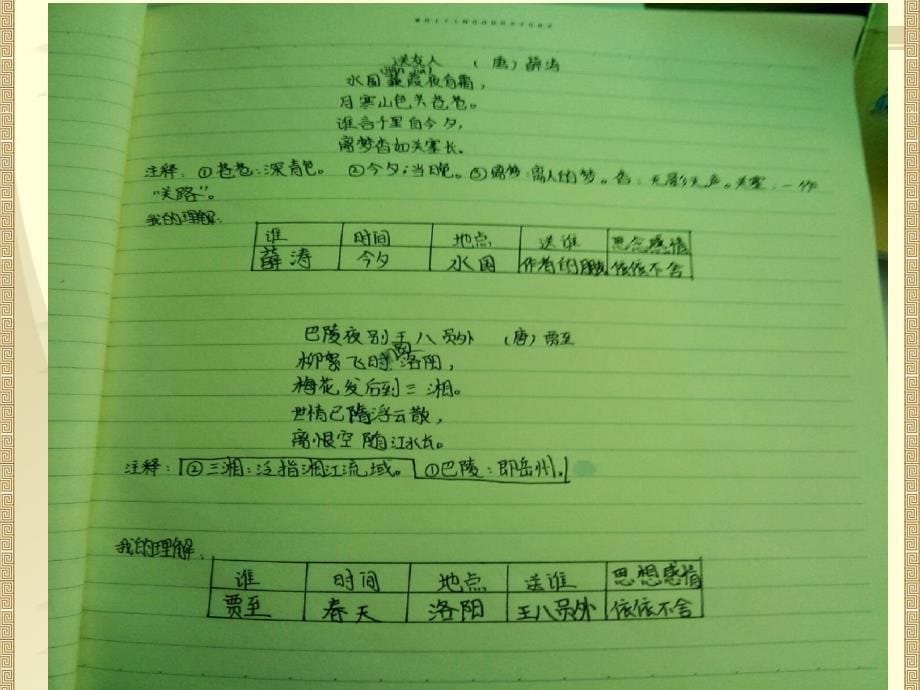 WRITINGOURSTORY
送友人 （唐）薛涛
(jiān jiā)
水国蒹葭夜有霜，
月寒山色共苍苍。
谁言千里自今夕，
离梦杳如关塞长。
注释：①苍苍：深青色。 ②今夕：当晚。③离梦：离人的梦。杳：无影无声。关塞：一作
“关路”。
我的理解：
谁 时间 地点 送谁 思念感情
薛涛 今夕 水国 作者的朋友 依依不舍
巴陵夜别王八员外 （唐）贾至
柳絮飞时别洛阳，
梅花发后到三湘。
世情已随浮云散，
离恨空随江水长。
注释：②三湘：泛指湘江流域。 ①巴陵：即岳州。
我的理解：
谁 时间 地点 送谁 思想感情
贾至 春天 洛阳 王八员外 依依不舍